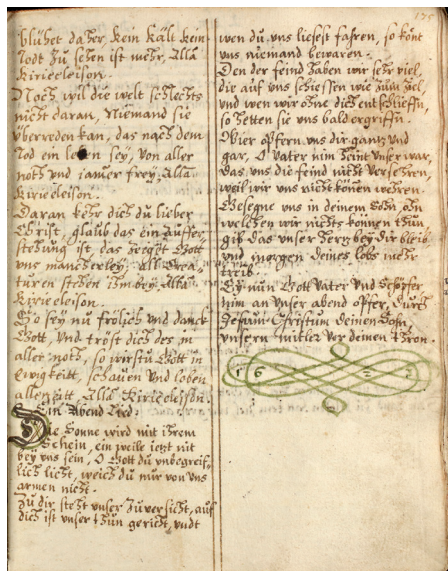 blühet daher, kein kält kein
todt zu sehen ist mehr, Alla
kirieeleison.
Noch wil die welt schlechts
nicht daran, Niemand sie
überreden kan, das nach dem
Tod ein leben sey, von aller
noth vnd jamer frey, Alla
kirieeleison.
Daran kehr dich du lieber
Christ, glaub das ein Auffer
stehung ist, das zeiget Gott
vns mancherley, all Crea-
turen stehen ihm bey, Alla
kirieeleison.
So sey nu frölich vnd danck
Gott, vnd tröst dich des in
aller noth, so wirstu Gott in
Ewigkeitt, schauen vnd loben
allezeitt, Alla kirieeleison.
Ein Abend Lied.
Die Sonne wird mit ihrem
Schein, ein weile jetzt nit
bey vns sein, O Gott du vnbegreif-
lich liecht, weich du nur von vns
armen nicht.
Zu dir steht vnser Zuversicht, auf
dich ist vnser thun gericht, vndt
wen du vns liesest fahren, so könt
vns niemand bewaren.
Den der feind haben wir sehr viel,
die auf vns schiessen wie zum ziel,
vnd wen wir ohne dich entschlieffn,
so hetten sie vns bald ergriffn.
Wier opfern vns dir gantz vnd
gar, O Vater nim heint vnser war,
das vns die feind nicht versehren,
weil wir vns nicht könen wehren.
Gesegne vns in deinem Sohn ohn
welchen wir nichts können thun,
gib das vnser hertz bey dir bleib
vnd morgen deines lobs mehr
treib.
Ey nun Gott Vater vnd Schöpfer
nim an vnser abend opfer, durch
Jesum Christum deinen Sohn,
vnsern mitler vor deinen thron.